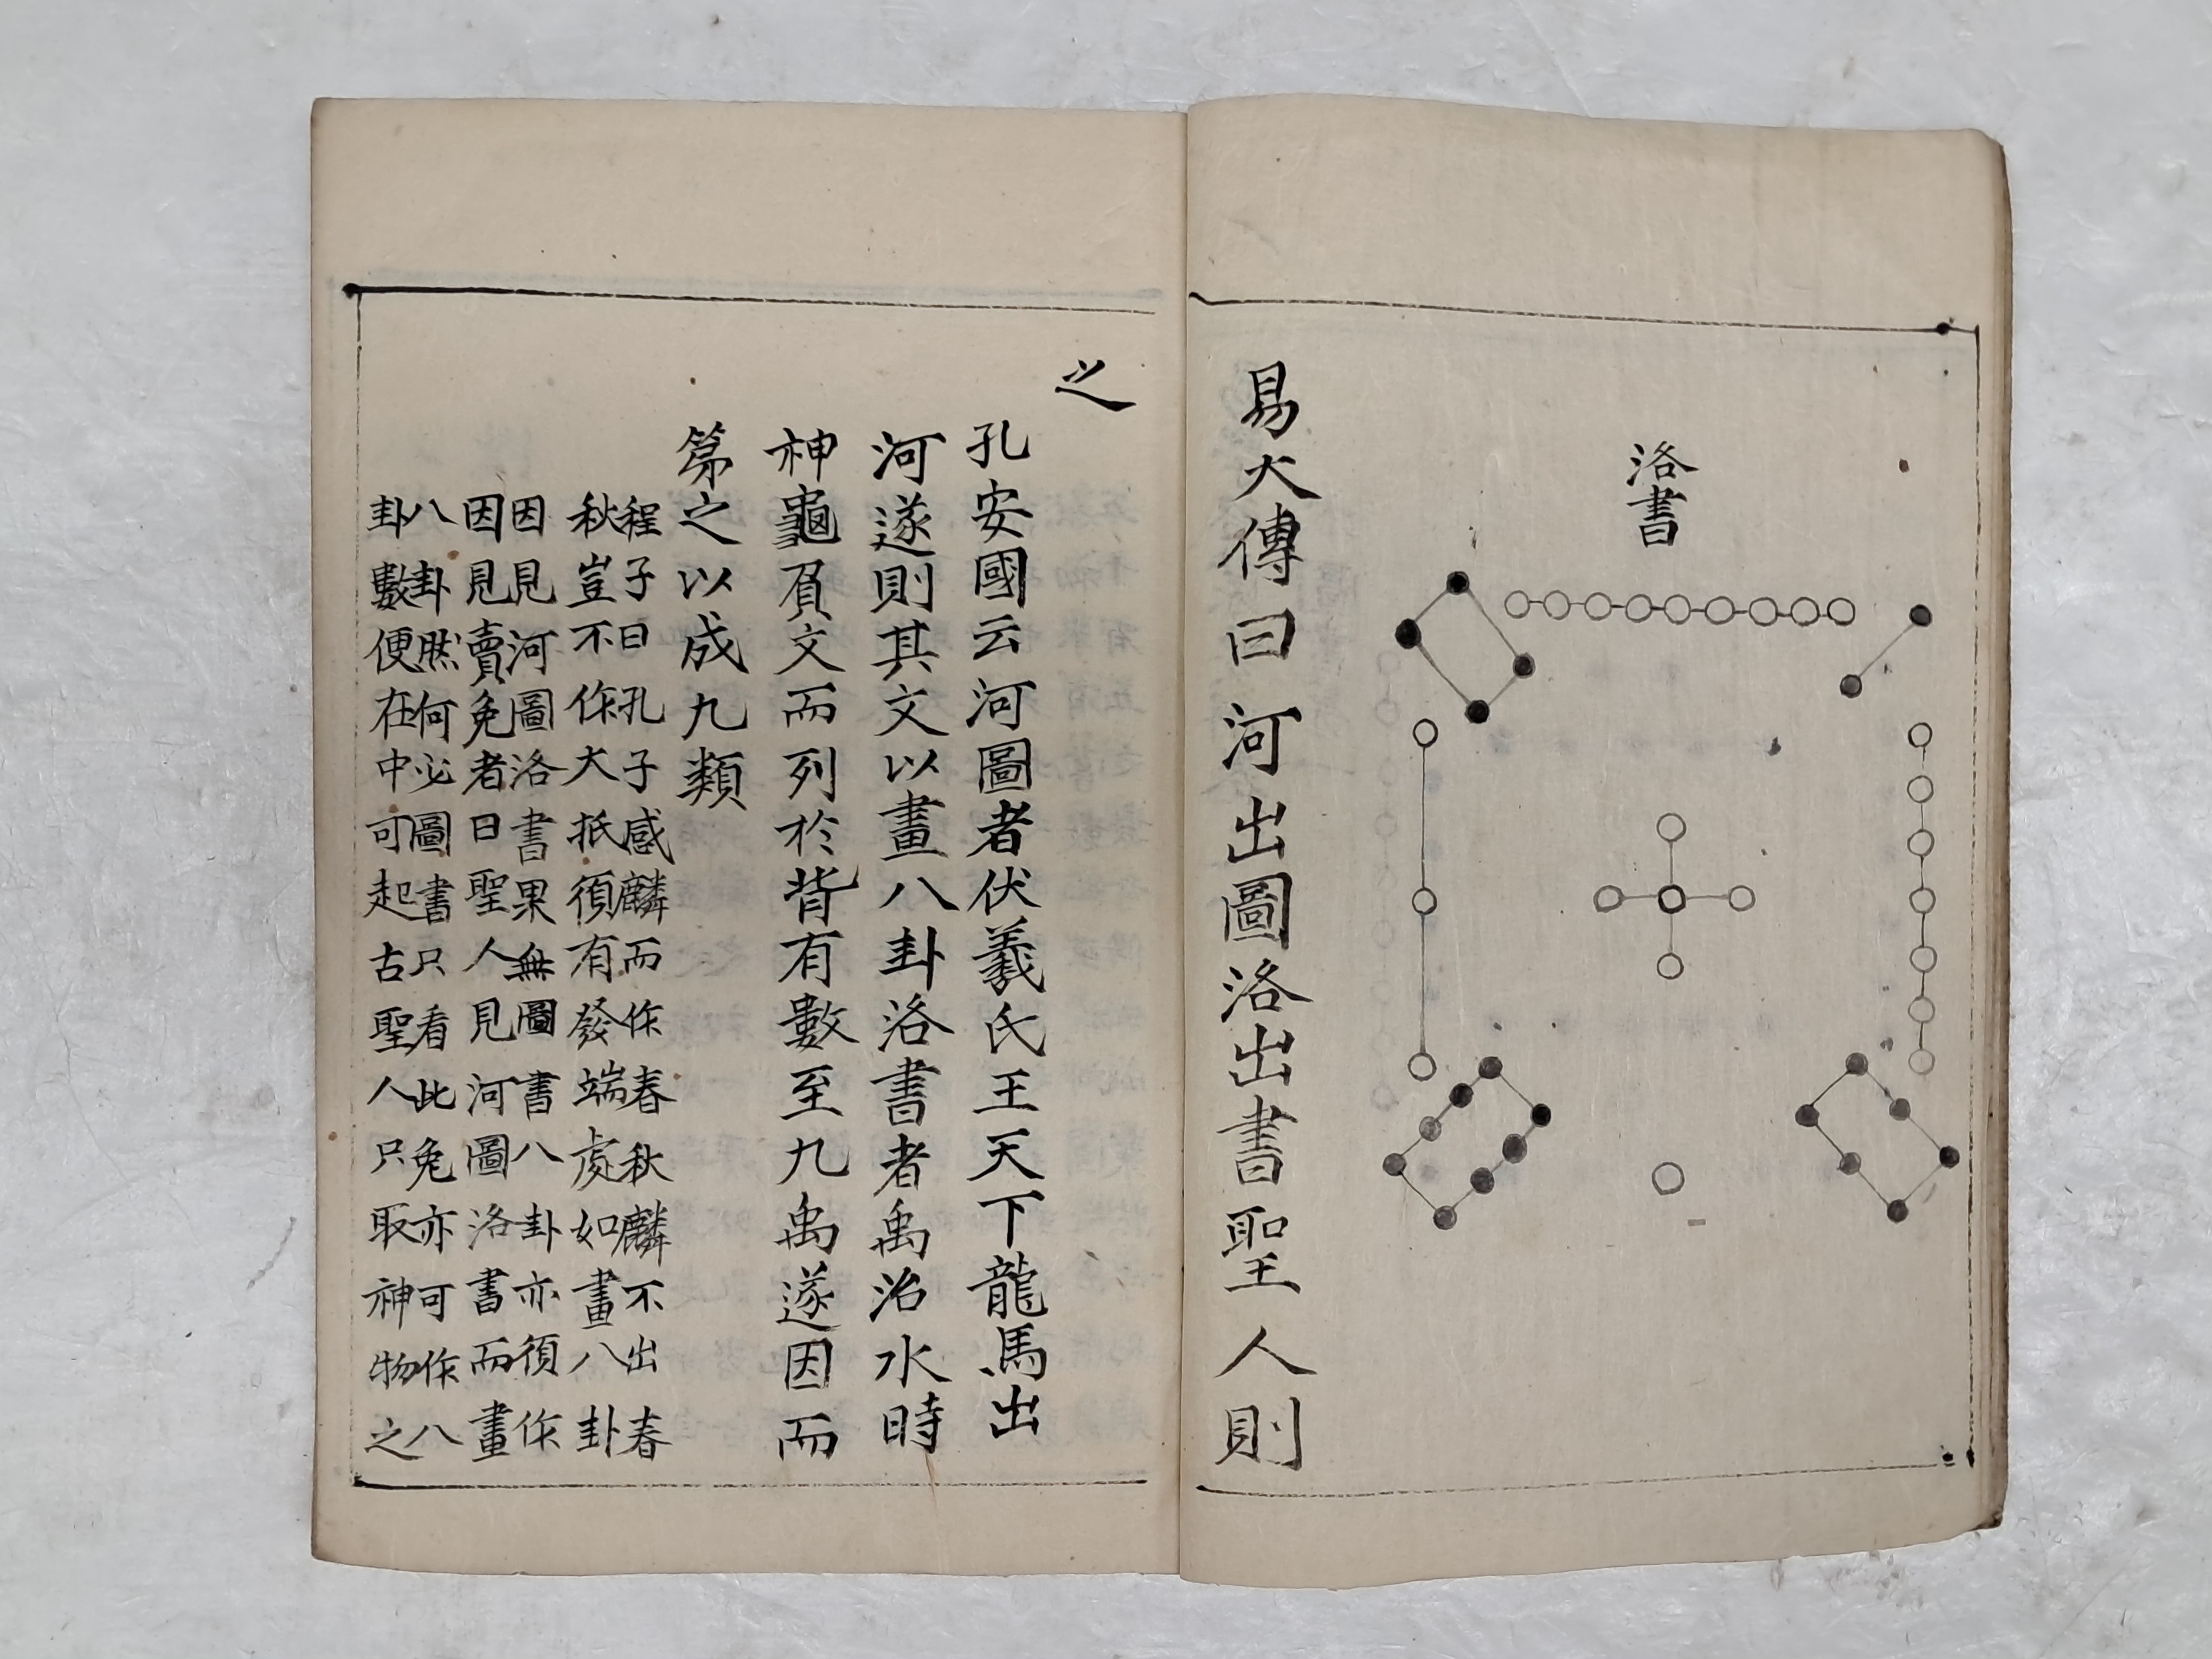 洛書
易大傳曰河出圖洛出書聖人則
之
孔安國云河圖者伏羲氏王天下龍馬出
河遂則其文以畫八卦洛書者禹治水時
神龜負文而列於背有數至九禹遂因而
第之以成九類
程子曰孔子感麟而作春秋麟不出春
秋豈不作大抵須有發端處如畫八卦
因見河圖洛書果無圖書八卦亦須作
因見賣兔者曰聖人見河圖洛書而畫
八卦然何必圖書只看此兔亦可作八
卦數便在中可起古聖人只取神物之